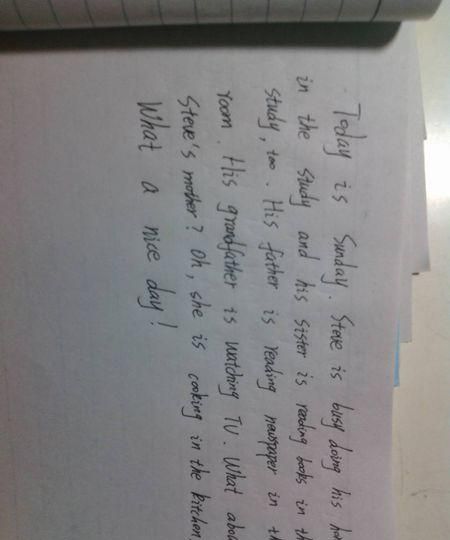 Today is Sunday. Steve is busy doing his
in the study and his sister is reading books in
study, too. His father is reading newspaper in
room. His grandfather is watching TV. What
Steve's mother? Oh, she is cooking in the kitchen.
What a nice day!